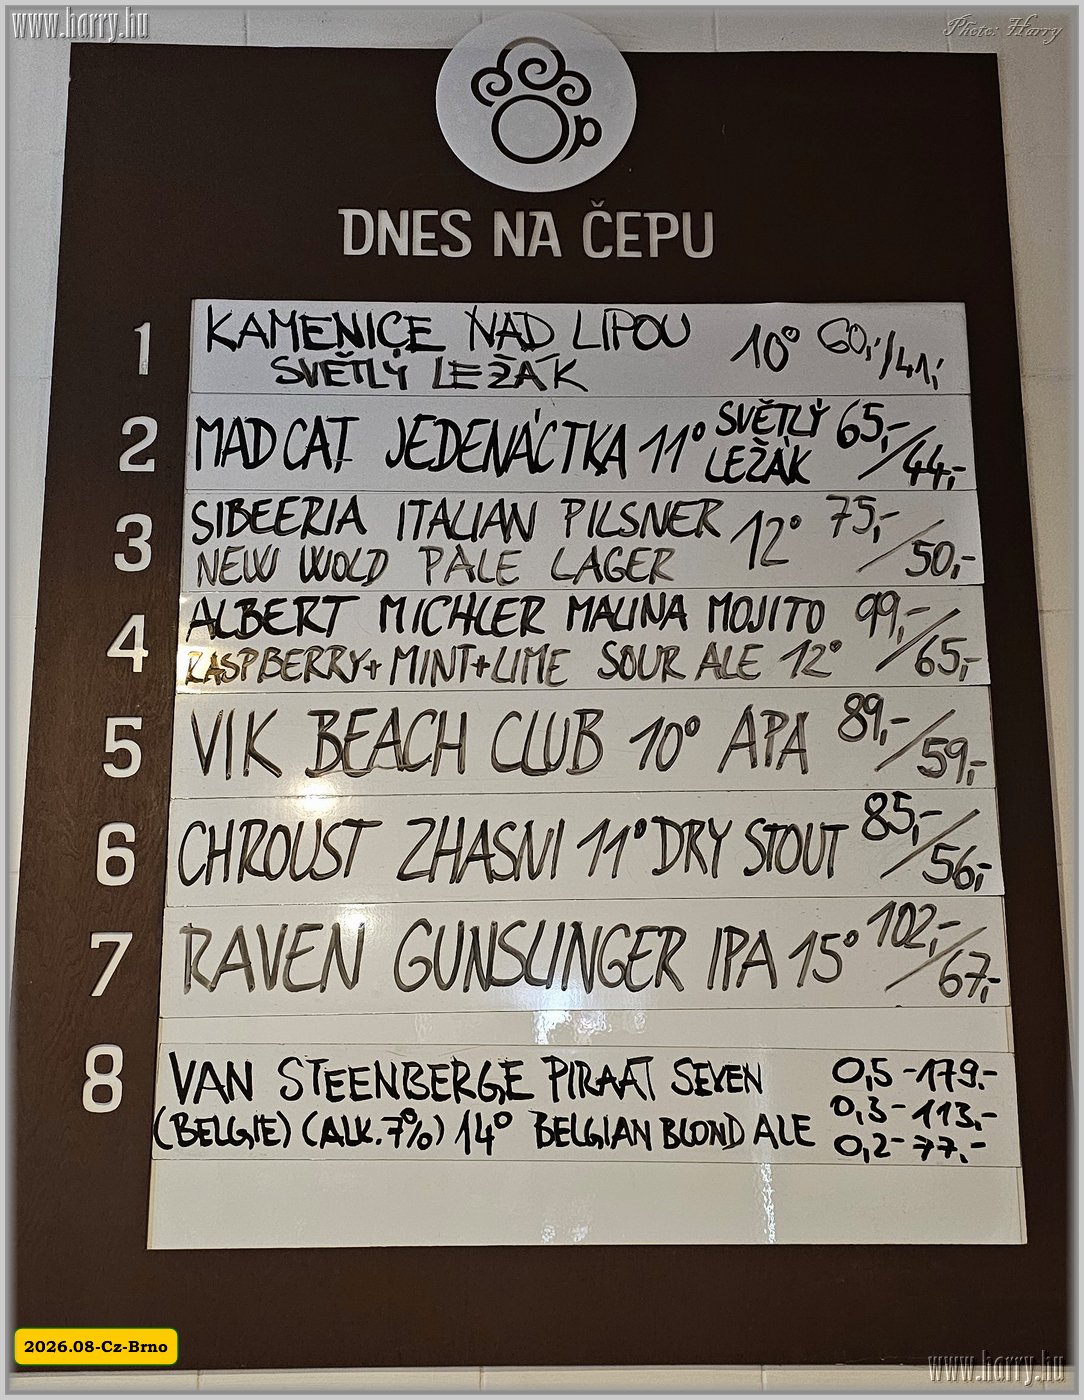 www.harry.hu
Photo: Harry
p
DNES NA ČEPU
1 KAMENICE NAD LIPOU 10° 60,-/41,-
SVĚTLÝ LEŽÁK
2 MAD CAT JEDENÁCTKA 11° SVĚTLÝ LEŽÁK 65,-/44,-
3 SIBEERIA ITALIAN PILSNER 12° 75,-/50,-
NEW WOLD PALE LAGER
4 ALBERT MICHLER MALINA MOJITO 99,-/65,-
RASPBERRY+MINT+LIME SOUR ALE 12°
5 VIK BEACH CLUB 10° APA 89,-/59,-
6 CHROUST ZHASNI 11° DRY STOUT 85,-/56,-
7 RAVEN GUNSLINGER IPA 15° 102,-/67,-
8 VAN STEENBERGE PIRAAT SEVEN 0,5-179.-
(BELGIE) (ALK.7%) 14° BELGIAN BLOND ALE 0,3-113,-
0,2-77.-
2026.08-Cz-Brno
www.harry.hu